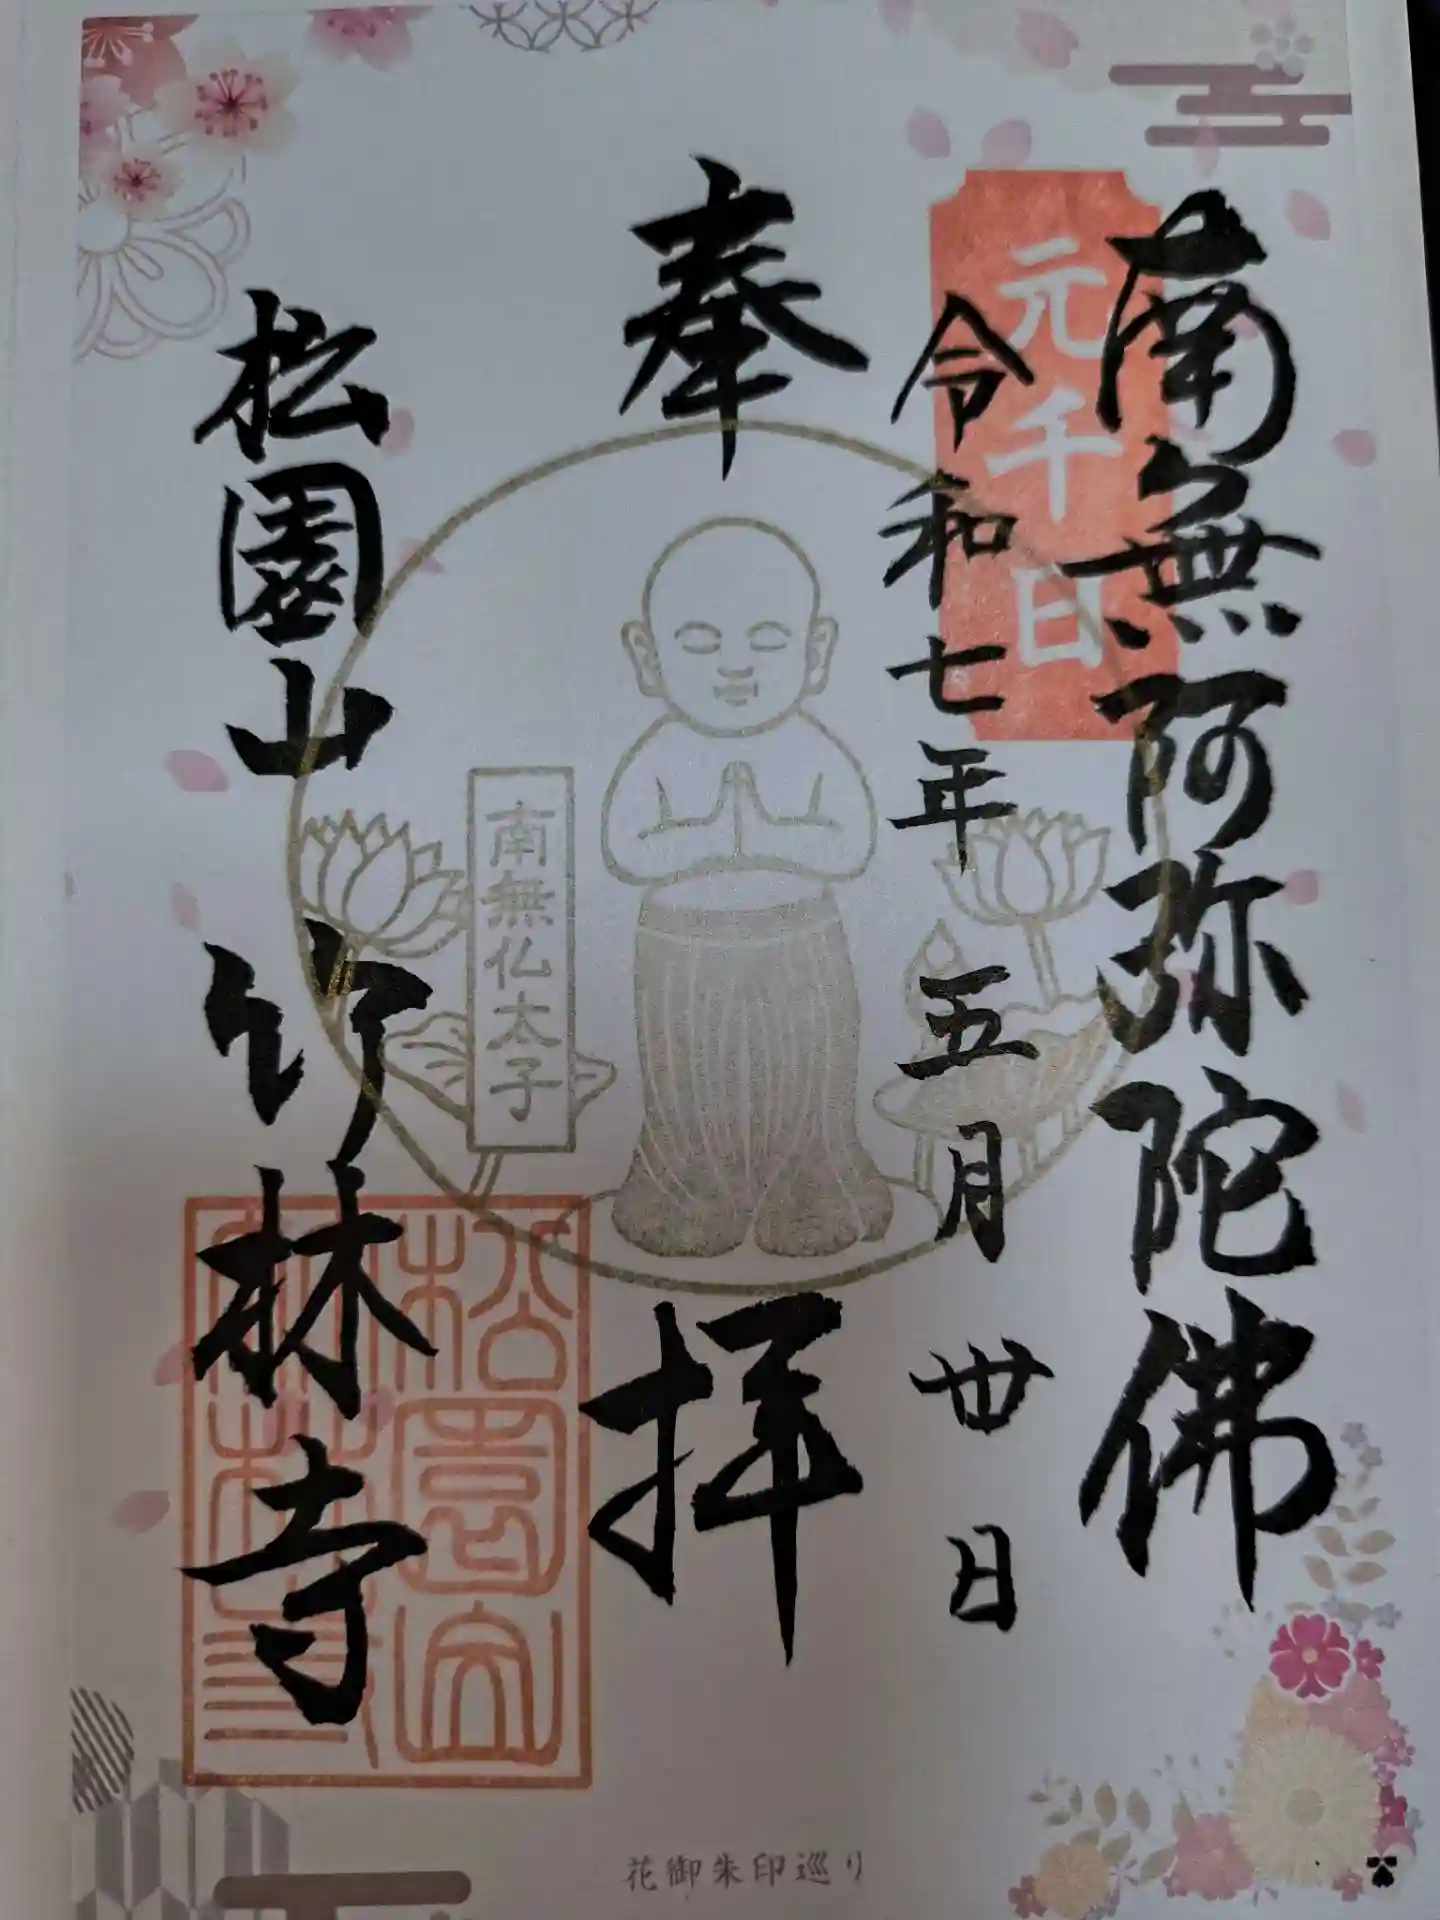 南無阿弥陀佛
元千日
令和七年 五月 丗日
奉拝
南無仏太子
松園山 竹林寺
花御朱印巡り